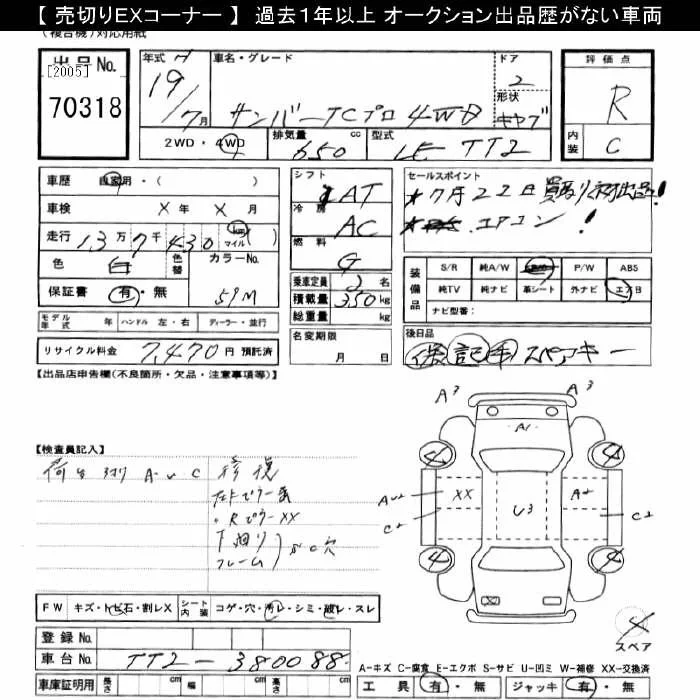 【 売切りEXコーナー 】 過去１年以上 オークション出品歴がない車両
(複合機)対応用紙
出品No.
[2005]
70318
年式 H 19 / 7月
車名・グレード
サンバーTCプロ 4WD
ドア 2
形状 キャブ
2WD・4WD
排気量 650 cc
型式 LE TT2
評価点 R
内装 C
車歴 自家用・( )
車検 X 年 X 月
走行 13万7千430 km マイル ( )
色 白 色替 カラーNo.
保証書 有・無 59M
モデル年式 年 ハンドル 左・右 ディーラー・並行
リサイクル料金 7,470 円 預託済
シフト AT
冷房 AC
燃料 G
乗車定員 2 名
積載量 350 kg
総重量 kg
名変期限 月 日
セールスポイント
★7月22日買取り初出品!
エアコン!
装備品 S/R 純A/W P/W ABS
純TV 純ナビ 革シート 外ナビ エアB
ナビ型番:
後日品
保 記 手 スペアキー
【出品店申告欄(不良箇所・欠品・注意事項等)】
【検査員記入】
荷台 AUC 修復
XX
下廻り
フレーム SC穴
A3 A3
A1
XX U3 A2
C2 C2
4 4
4 4
4
スペア
FW キズ・トビ石・割レX シート内装 コゲ・穴・汚レ・シミ・破レ・スレ
登録No.
車台No. TT2-380088
車庫証明用 長さ cm 幅 cm 高さ cm
A-キズ C-腐食 E-エクボ S-サビ U-凹ミ W-補修 XX-交換済
工具 有・無 ジャッキ 有・無